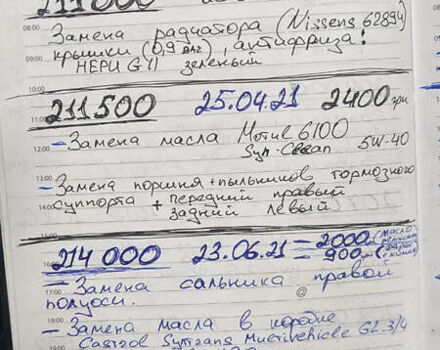 211000
Замена радиатора (Nissens 62894)
крышки (0,9 ), антифриза!
НЕРИ G11 зеленый
211500 25.04.21 2400 грн
- Замена масла Мотиl 6100
Syn-Clean 5W-40
- Замена поршня + пыльников тормозного
суппорта + передний правый
задний левый
214 000 23.06.21 = 2000 (масло
= 900
- Замена сальника правой
полуоси.
- Замена масла в коробке
Castrol Syntrans Multivehicle GL 3/4
08:00
09:00
10:00
11:00
12:00
13:00
14:00
15:00
16:00
17:00
18:00
19:00